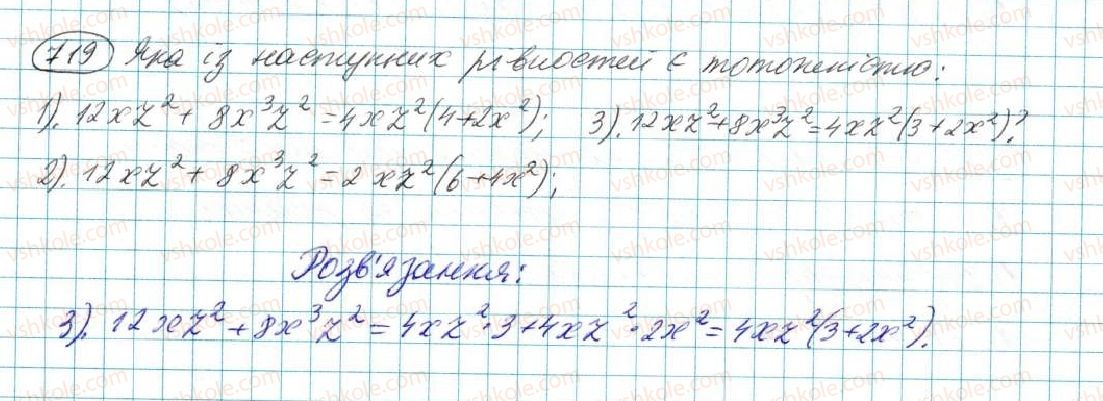 719 Яка із наступних рівностей є тотожністю:
1). 12xz² + 8x³z² = 4xz²(4+2x²); 3). 12xz²+8x³z² = 4xz²(3+2x²)?
2). 12xz² + 8x³z² = 2xz²(6+4x²);
Розв'язання:
3). 12xz² + 8x³z² = 4xz²·3+4xz²·2x² = 4xz²(3+2x²).